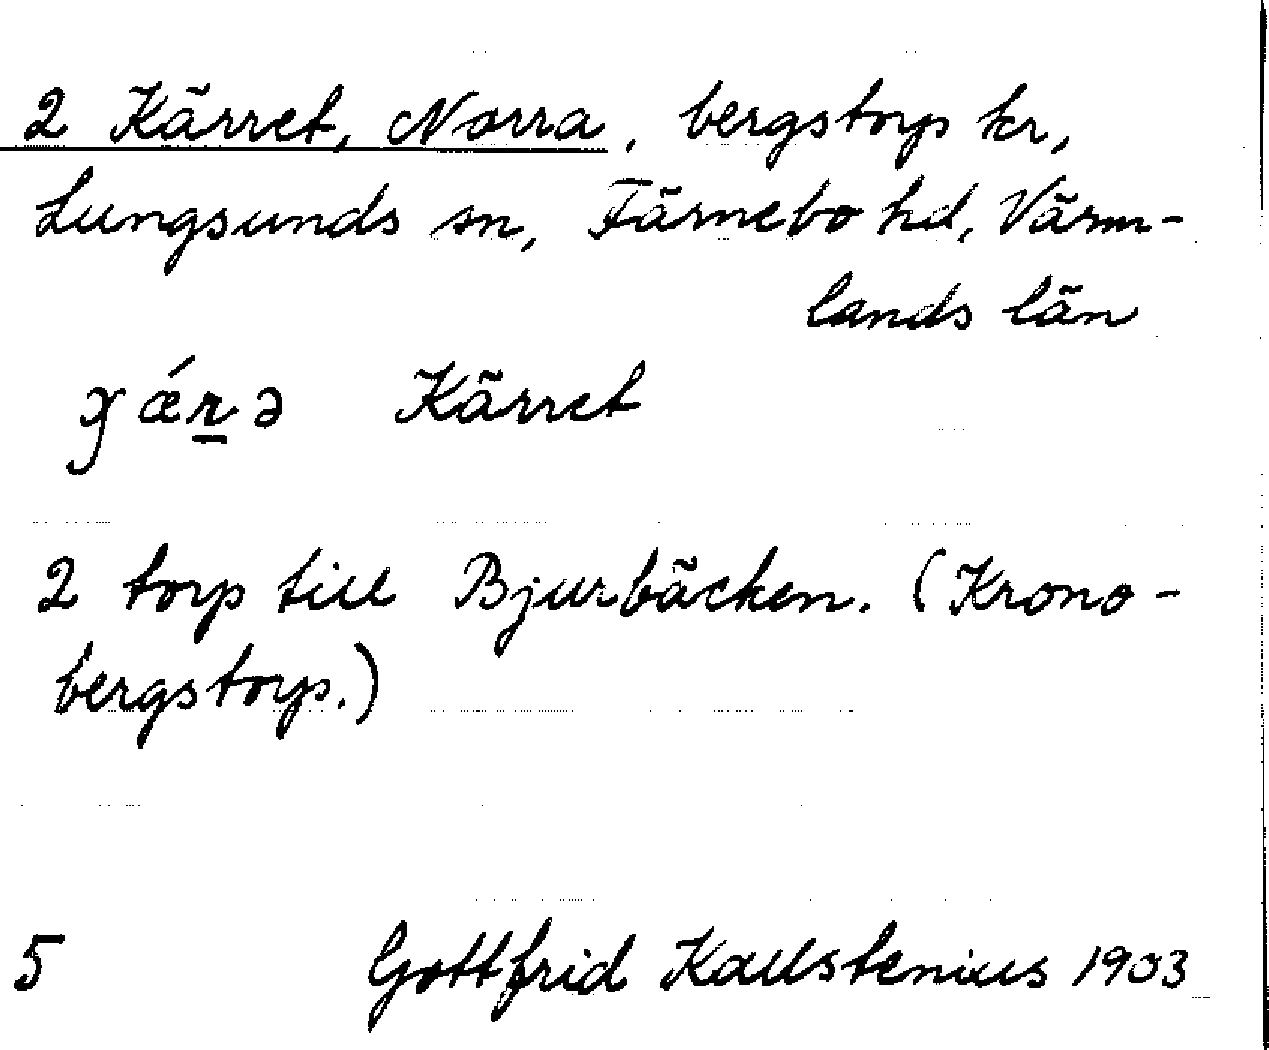 2 Kärret, Norra, bergstorp kr,
Lungsunds sn, Färnebo hd, Värm-
lands län
ɣǽṟə Kärret
2 torp till Bjurbäcken. (Krono-
bergstorp.)
5 Gottfrid Kallstenius 1903